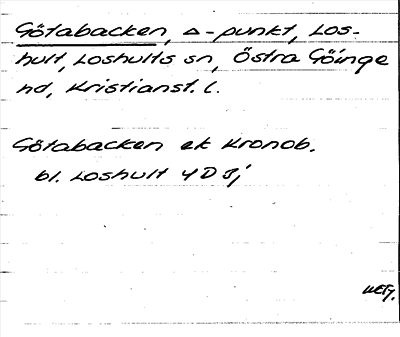 Götabacken, Δ-punkt, Los-
hult, Loshults sn, Östra Göinge
hd, Kristianst. l.
Götabacken ek Kronob.
bl. Loshult 4D 3j